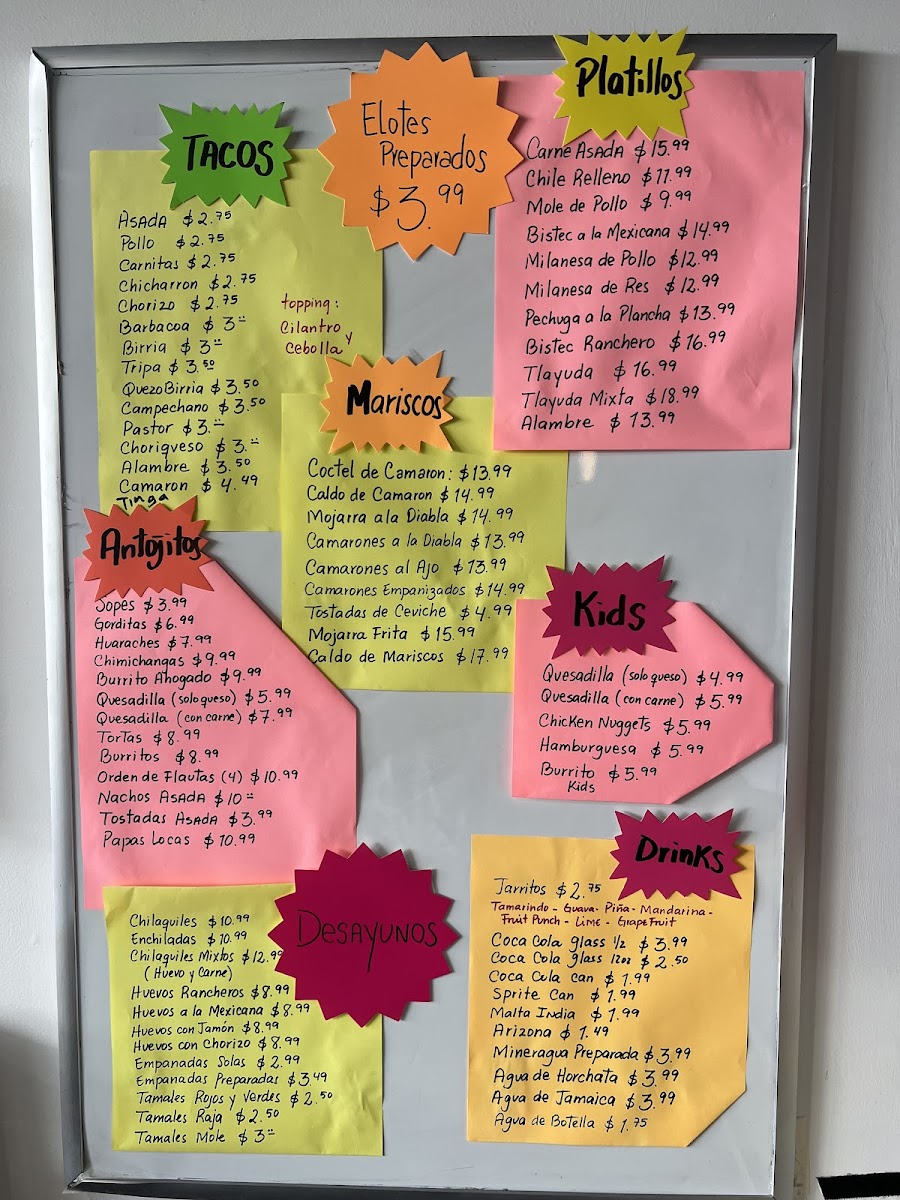 TACOS
Asada $2.75
Pollo $2.75
Carnitas $2.75
Chicharron $2.75
Chorizo $2.75
Barbacoa $3=
Birria $3=
Tripa $3.50
QuezoBirria $3.50
Campechano $3.50
Pastor $3.=
Choriqueso $3.=
Alambre $3.50
Camaron $4.49
Tinga
topping:
Cilantro y
Cebolla
Elotes
Preparados
$3.99
Platillos
Carne Asada $15.99
Chile Relleno $11.99
Mole de Pollo $9.99
Bistec a la Mexicana $14.99
Milanesa de Pollo $12.99
Milanesa de Res $12.99
Pechuga a la Plancha $13.99
Bistec Ranchero $16.99
Tlayuda $16.99
Tlayuda Mixta $18.99
Alambre $13.99
Mariscos
Coctel de Camaron: $13.99
Caldo de Camaron $14.99
Mojarra ala Diabla $14.99
Camarones a la Diabla $13.99
Camarones al Ajo $13.99
Camarones Empanizados $14.99
Tostadas de Ceviche $4.99
Mojarra Frita $15.99
Caldo de Mariscos $17.99
Antojitos
Sopes $3.99
Gorditas $6.99
Huaraches $7.99
Chimichangas $9.99
Burrito Ahogado $9.99
Quesadilla (solo queso) $5.99
Quesadilla (con carne) $7.99
Tortas $8.99
Burritos $8.99
Orden de Flautas (4) $10.99
Nachos Asada $10=
Tostadas Asada $3.99
Papas Locas $10.99
Kids
Quesadilla (solo queso) $4.99
Quesadilla (con carne) $5.99
Chicken Nuggets $5.99
Hamburguesa $5.99
Burrito $5.99
Kids
Desayunos
Chilaquiles $10.99
Enchiladas $10.99
Chilaquiles Mixtos $12.99
(Huevo y Carne)
Huevos Rancheros $8.99
Huevos a la Mexicana $8.99
Huevos con Jamón $8.99
Huevos con Chorizo $8.99
Empanadas Solas $2.99
Empanadas Preparadas $3.49
Tamales Rojos y Verdes $2.50
Tamales Raja $2.50
Tamales Mole $3=
Drinks
Jarritos $2.75
Tamarindo - Guava - Piña - Mandarina -
Fruit Punch - Lime - GrapeFruit
Coca Cola glass 1/2 $3.99
Coca Cola glass 12oz $2.50
Coca Cola Can $1.99
Sprite Can $1.99
Malta India $1.99
Arizona $1.49
Mineragua Preparada $3.99
Agua de Horchata $3.99
Agua de Jamaica $3.99
Agua de Botella $1.75